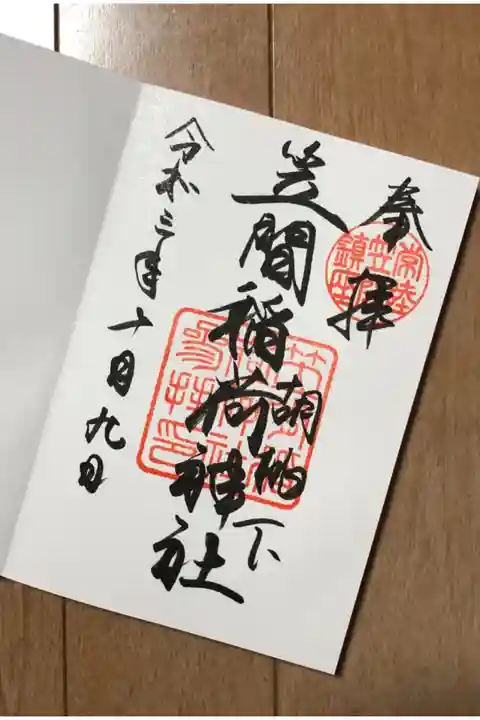 奉拝
常陸
笠間
鎮座
胡桃下
笠間稲荷神社
令和三年十月九日